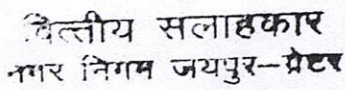 वित्तीय सलाहकार
नगर निगम जयपुर-ग्रेटर